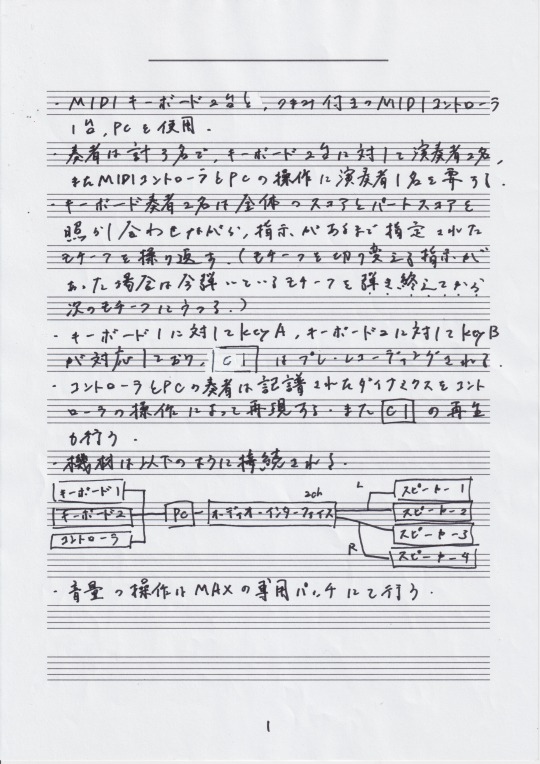 ・MIDIキーボード2台と,つまみ付きのMIDIコントローラ
1台,PCを使用.
・奏者は計3名で,キーボード2台に対して演奏者2名,
またMIDIコントローラとPCの操作に演奏者1名を要する.
・キーボード奏者2名は全体のスコアとパートスコアを
照らし合わせながら,指示があるまで指定された
モチーフを繰り返す.(モチーフを切り変える指示が
あった場合は今弾いているモチーフを弾き終えてから
次のモチーフにうつる.)
・キーボード1に対してkeyA,キーボード2に対してkeyB
が対応しており, C1 はプレ・レコーディングされる.
・コントローラとPCの奏者は記譜されたダイナミクスをコント
ローラの操作によって再現する.また C1 の再生
も行う.
・機材は以下のように接続される.
キーボード1
キーボード2
コントローラ
PC
オーディオ・インターフェイス
2ch
L
R
スピーカー1
スピーカー2
スピーカー3
スピーカー4
・音量の操作はMAXの専用パッチにて行う.
1